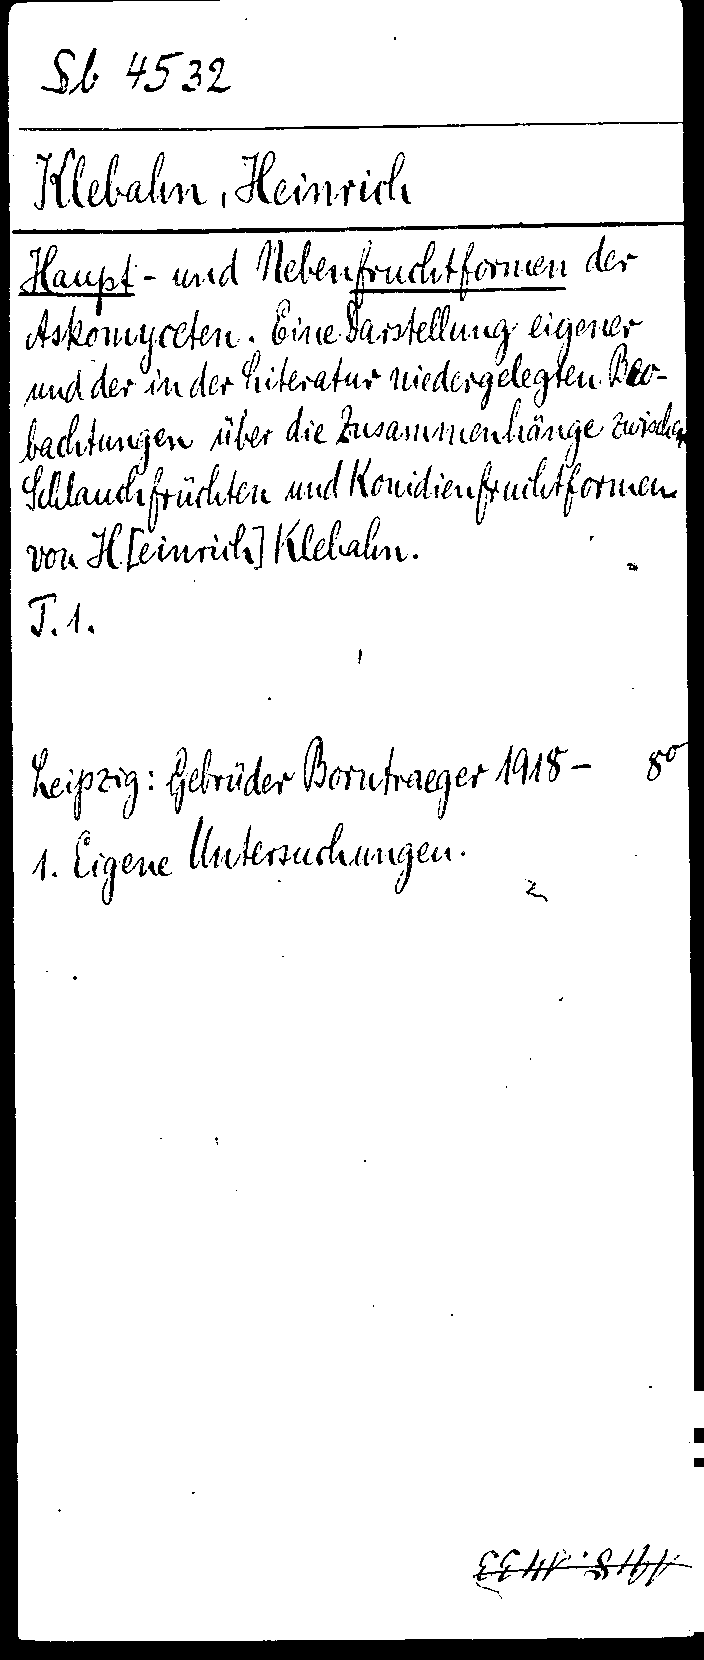 Sb 4532
Klebahn, Heinrich
Haupt- und Nebenfruchtformen der
Askomyceten. Eine Darstellung eigener
und der in der Literatur niedergelegten Beo-
bachtungen über die Zusammenhänge zwischen
Schlauchfrüchten und Konidienfruchtformen
von H[einrich] Klebahn.
T. 1.
Leipzig: Gebrüder Borntraeger 1918- 8°
1. Eigene Untersuchungen.